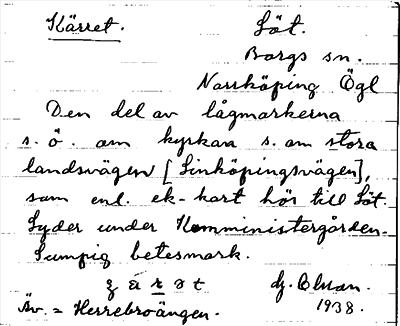 Kärret. Löt.
Borgs sn.
Norrköping Ögl
Den del av lågmarkerna
s. ö. om kyrkan s. om stora
landsvägen [Linköpingsvägen],
som enl. ek-kart hör till Löt.
Lyder under Komministergården.
Sumpig betesmark.
dj. Olsson.
1938.
Äv. = Herrebroängen.